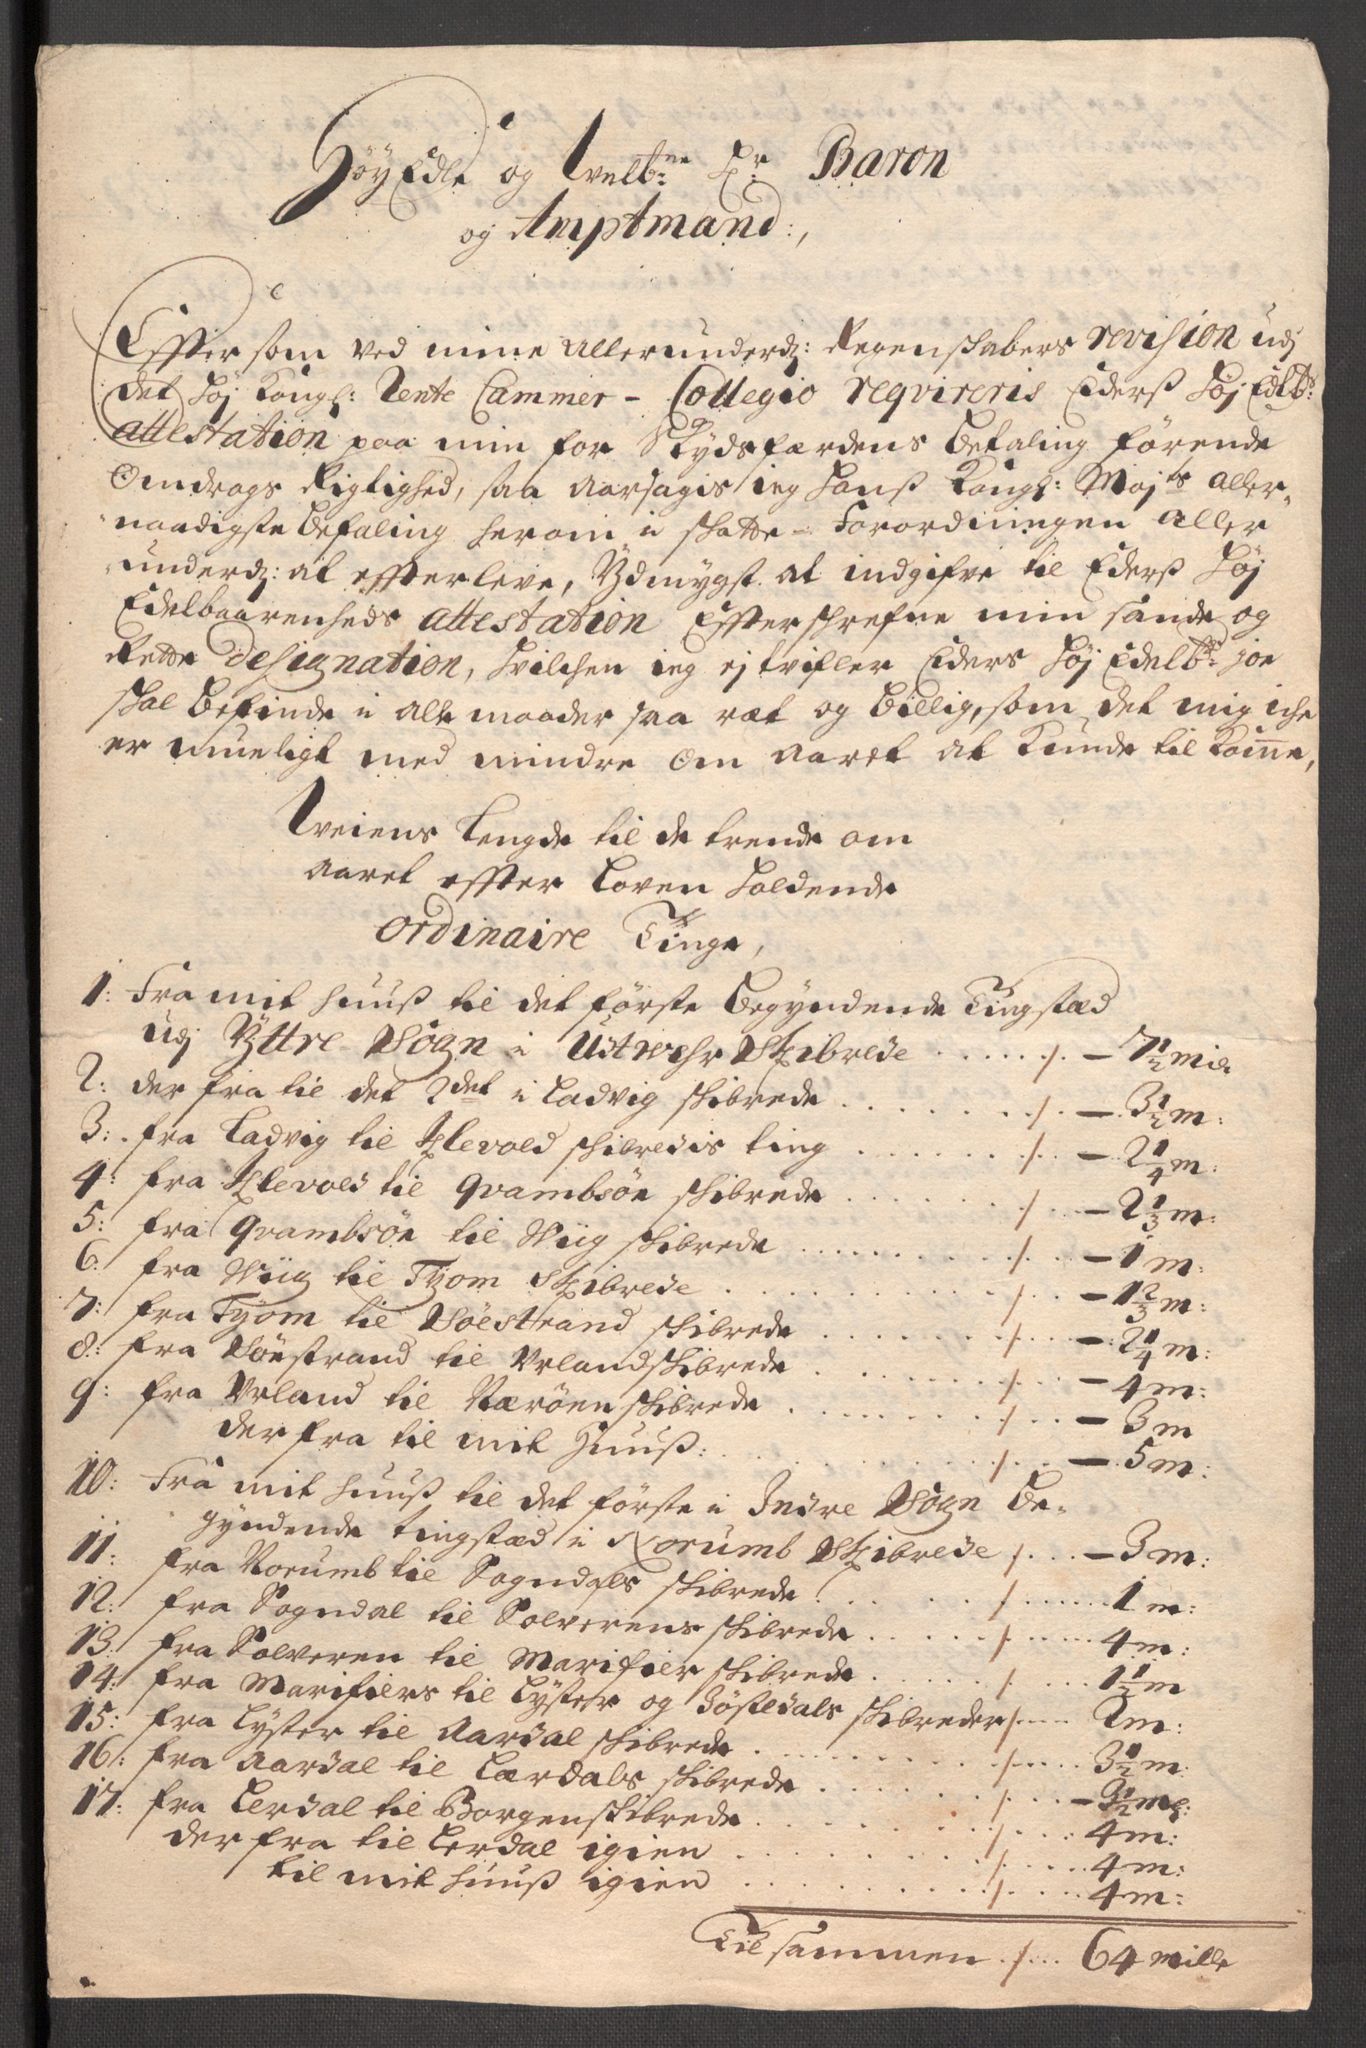 HöyEdle og Welbne Hr Baron
og Amptmand:,
Effter som ved mine allerunderd: Regenskabers revision udj
det høj Kongl: Rente Cammer - Collegio reqvireris Eders Høj Edelb:
attestation paa min for Skydsfærdens betaling förende
Omdrags Rigtighed, saa aarsagis ieg Hans Kongl: Majts aller-
naadigste befaling herom i skatte - Forordningen aller
underd: at effterleve, Ydmygst at indgifve til Eders Høj
Edelbaarenheds attestation Effterskrefne min sande og
Rette designation, hvilchen ieg ej tvifler Eders Høj Edelb:hd joe
skal befinde i alle maader saa ræt og billig, som det mig iche
er mueligt med mindre om aaret at kunde til komme,
Weiens Lengde til de trende om
aaret effter Loven holdende
Ordinaire Tinge,
1: Fra mit huus til det förste begyndende Tingstæd
udj Yttre Sogn i Udtwehr Skibrede ...... /. — 7 1/2 mile
2: der fra til det 2det i Ladvig skibrede ....... /. — 3 1/2 m:
3: fra Ladvig til Klevold skibredis ting ....... /. — 2 1/4 m:
4: fra Klevold til Qvambsöe skibrede ....... /. — 2 1/3 m:
5: fra Qvambsöe til Wiig skibrede .......... /. — 1 m:
6: fra Wiig til Tzom Skibrede .......... /. — 1 2/3 m:
7: fra Tjom til Söestrand skibrede ....... /. — 2 1/4 m:
8: fra Söestrand til Urland skibrede ........ /. — 4 m:
9: fra Urland til Næröen skibrede ........ /. — 3 m
der fra til mit Huus: ........... /. — 5 m:
10: Fra mit huus til det förste i Indre Sogn be-
gyndende tingstæd i Norumb Skibrede /. — 3 m:
11: fra Norumb til Sogndals skibrede ...... /. 1 m:
12: fra Sogndal til Solverens skibrede ..... /. 4 m:
13: fra Solveren til Marifier skibrede ..... /. 1 1/2 m
14: fra Marifiers til Lyster og Jostedals skibreder /. 2 m:
15: fra Lyster til Aardal skibrede ........ /. 3 1/2 m:
16: fra Aardal til Lærdals skibrede ....... /. — 3 1/2 ml:
17: fra Lerdal til Borgen skibrede ........ /. 4 m:
der fra til Lerdal igien ......... /. 4 m:
til mit huus igien ......... /. 4 m:
Til sammen ./. 64 mille